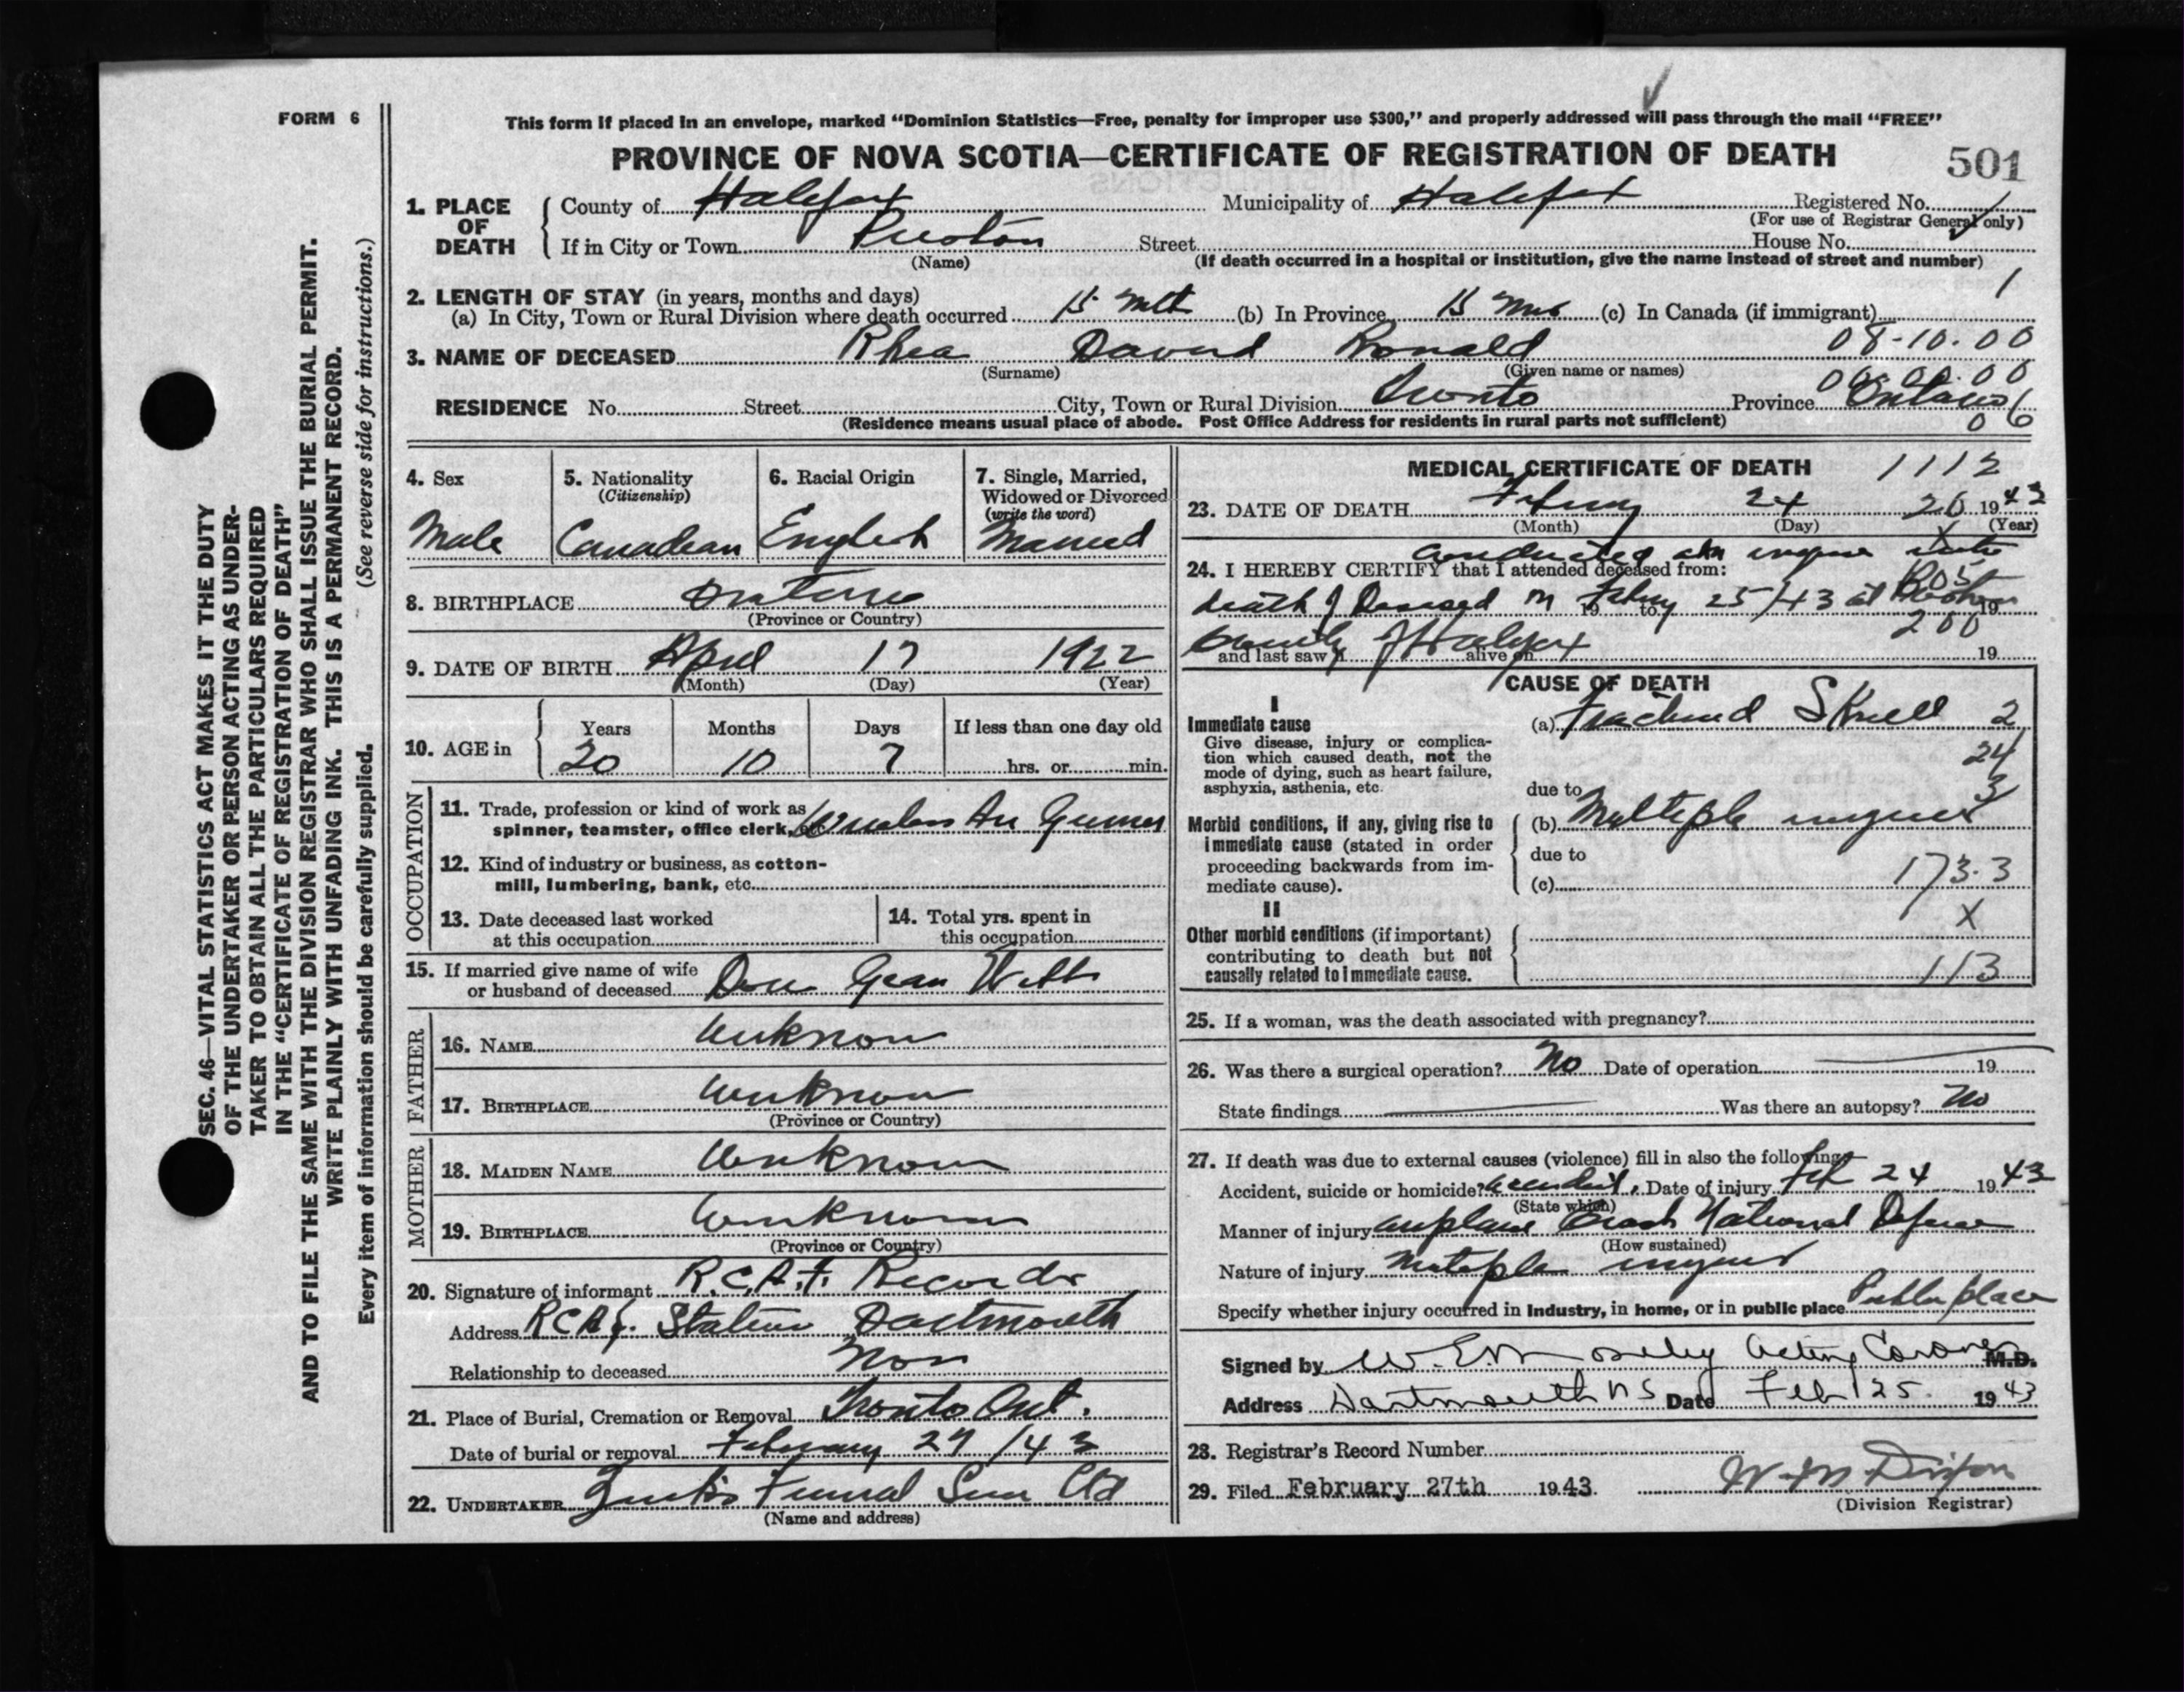 FORM 6
This form if placed in an envelope, marked "Dominion Statistics—Free, penalty for improper use $300," and properly addressed will pass through the mail "FREE"
PROVINCE OF NOVA SCOTIA—CERTIFICATE OF REGISTRATION OF DEATH
501
1. PLACE OF DEATH
County of Halifax Municipality of Halifax Registered No.
(For use of Registrar General only)
If in City or Town Preston Street House No.
(Name) (If death occurred in a hospital or institution, give the name instead of street and number)
1
2. LENGTH OF STAY (in years, months and days)
(a) In City, Town or Rural Division where death occurred 15 Mth (b) In Province 15 Mos (c) In Canada (if immigrant)
3. NAME OF DECEASED Rhea David Ronald 08-10.00
(Surname) (Given name or names)
00.00.00
RESIDENCE No. Street City, Town or Rural Division Toronto Province Ontario
(Residence means usual place of abode. Post Office Address for residents in rural parts not sufficient) 06
4. Sex
Male
5. Nationality
(Citizenship)
Canadian
6. Racial Origin
English
7. Single, Married, Widowed or Divorced
(write the word)
Married
8. BIRTHPLACE Ontario
(Province or Country)
9. DATE OF BIRTH April 17 1922
(Month) (Day) (Year)
10. AGE in Years Months Days If less than one day old
20 10 7 hrs. or min.
OCCUPATION
11. Trade, profession or kind of work as spinner, teamster, office clerk, etc. Wireless Air Gunner
12. Kind of industry or business, as cotton-
mill, lumbering, bank, etc.
13. Date deceased last worked
at this occupation
14. Total yrs. spent in
this occupation
15. If married give name of wife
or husband of deceased Gean Webb
FATHER
16. NAME Unknown
17. BIRTHPLACE Unknown
(Province or Country)
MOTHER
18. MAIDEN NAME Unknown
19. BIRTHPLACE Unknown
(Province or Country)
20. Signature of informant R.C.A.F. Records
Address RCAF. Station Dartmouth
Relationship to deceased Non
21. Place of Burial, Cremation or Removal Toronto Ont.
Date of burial or removal February 27/43
22. UNDERTAKER Funeral Ltd
(Name and address)
MEDICAL CERTIFICATE OF DEATH 1112
23. DATE OF DEATH 24 20 1943
(Month) (Day) (Year)
X
conducted an into
24. I HEREBY CERTIFY that I attended deceased from:
R05
death of Deceased on 19 to 25/43 at 19
County of Halifax 200
and last saw h alive on 19
CAUSE OF DEATH
I
Immediate cause
Give disease, injury or complica-
tion which caused death, not the
mode of dying, such as heart failure,
asphyxia, asthenia, etc.
(a) Fractured Skull 2
24
due to 3
Morbid conditions, if any, giving rise to
immediate cause (stated in order
proceeding backwards from im-
mediate cause).
(b) Multiple injuries
due to
(c) 173.3
II X
Other morbid conditions (if important)
contributing to death but not
causally related to immediate cause.
113
25. If a woman, was the death associated with pregnancy?
26. Was there a surgical operation? No Date of operation 19
State findings Was there an autopsy? No
27. If death was due to external causes (violence) fill in also the following:
Accident, suicide or homicide? Accident. Date of injury Feb 24 1943
(State which)
Manner of injury Airplane Crash National Defence
(How sustained)
Nature of injury Multiple injuries
Specify whether injury occurred in Industry, in home, or in public place Public place
Signed by W. E. Moseley Acting Coroner M.D.
Address Dartmouth NS Date Feb 25. 1943
28. Registrar's Record Number
29. Filed February 27th 1943.
(Division Registrar)
SEC. 46—VITAL STATISTICS ACT MAKES IT THE DUTY
OF THE UNDERTAKER OR PERSON ACTING AS UNDER-
TAKER TO OBTAIN ALL THE PARTICULARS REQUIRED
IN THE "CERTIFICATE OF REGISTRATION OF DEATH"
AND TO FILE THE SAME WITH THE DIVISION REGISTRAR WHO SHALL ISSUE THE BURIAL PERMIT.
WRITE PLAINLY WITH UNFADING INK. THIS IS A PERMANENT RECORD.
Every item of information should be carefully supplied. (See reverse side for instructions.)